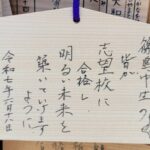 皆が
志望校に
合格し
明るい未来を
築いていけます
ように
令和七年六月十八日